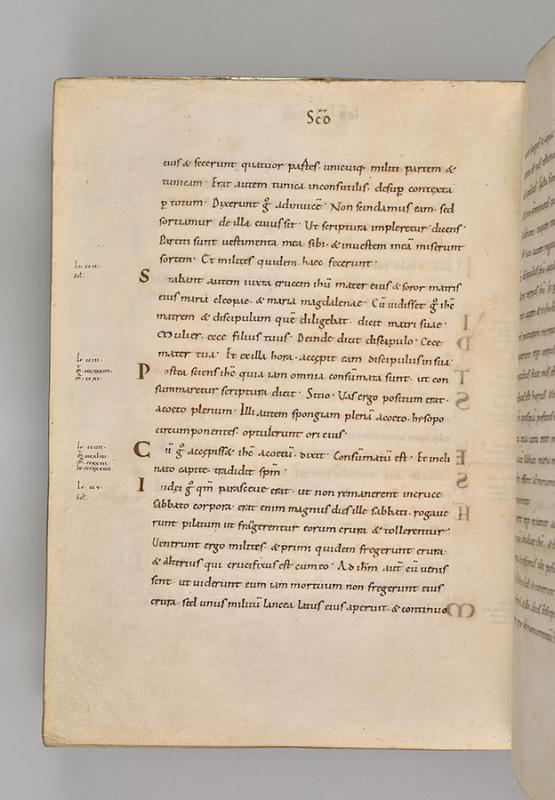 Scdō
eius & fecerunt quattuor partes. unicuiq; militi partem &
tunicam. Erat autem tunica inconsutilis. desup contexta
p totum. Dixerunt g̊ adinuicē. Non scindamus eam. sed
sortiamur de illa cuius sit. Ut scriptura impleretur dicens.
Partiti sunt uestimenta mea sibi. & inuestem meā miserunt
sortem. Et milites quidem. haec fecerunt.
Stabant autem iuxta crucem ihū mater eius & soror matris
eius maria cleopae. & maria magdalenae. Cū uidisset g̊ ihē
matrem & discipulum quē diligebat. dicit matri suae.
Mulier. ecce filius tuus. Deinde dicit discipulo. Ecce
mater tua. Et exilla hora. accepit eam discipulus insua.
Postea sciens ihē quia iam omnia consūmata sunt. ut con
summaretur scriptura. dicit. Sitio. Vas ergo positum erat.
aceto plenum. Illi autem spongiam plenā aceto. hysopo
circumponentes. optulerunt ori eius.
Cū g̊ accepisset ihē acetū. dixit. Consūmatū est. Et incli
nato capite. tradidit spm̄.
Iudei g̊ qm̄ parasceue erat. ut non remanerent incruce
sabbato corpora. erat enim magnus dies ille sabbati. rogaue
runt pilatum ut frangerentur eorum crura & tollerentur.
Uenerunt ergo milites. & primi quidem fregerunt crura.
& alterius qui crucifixus est cum eo. Ad ihm autē cū uenis
sent. ut uiderunt eum iam mortuum non fregerunt eius
crura. sed unus militū lancea latus eius aperuit. & continuo